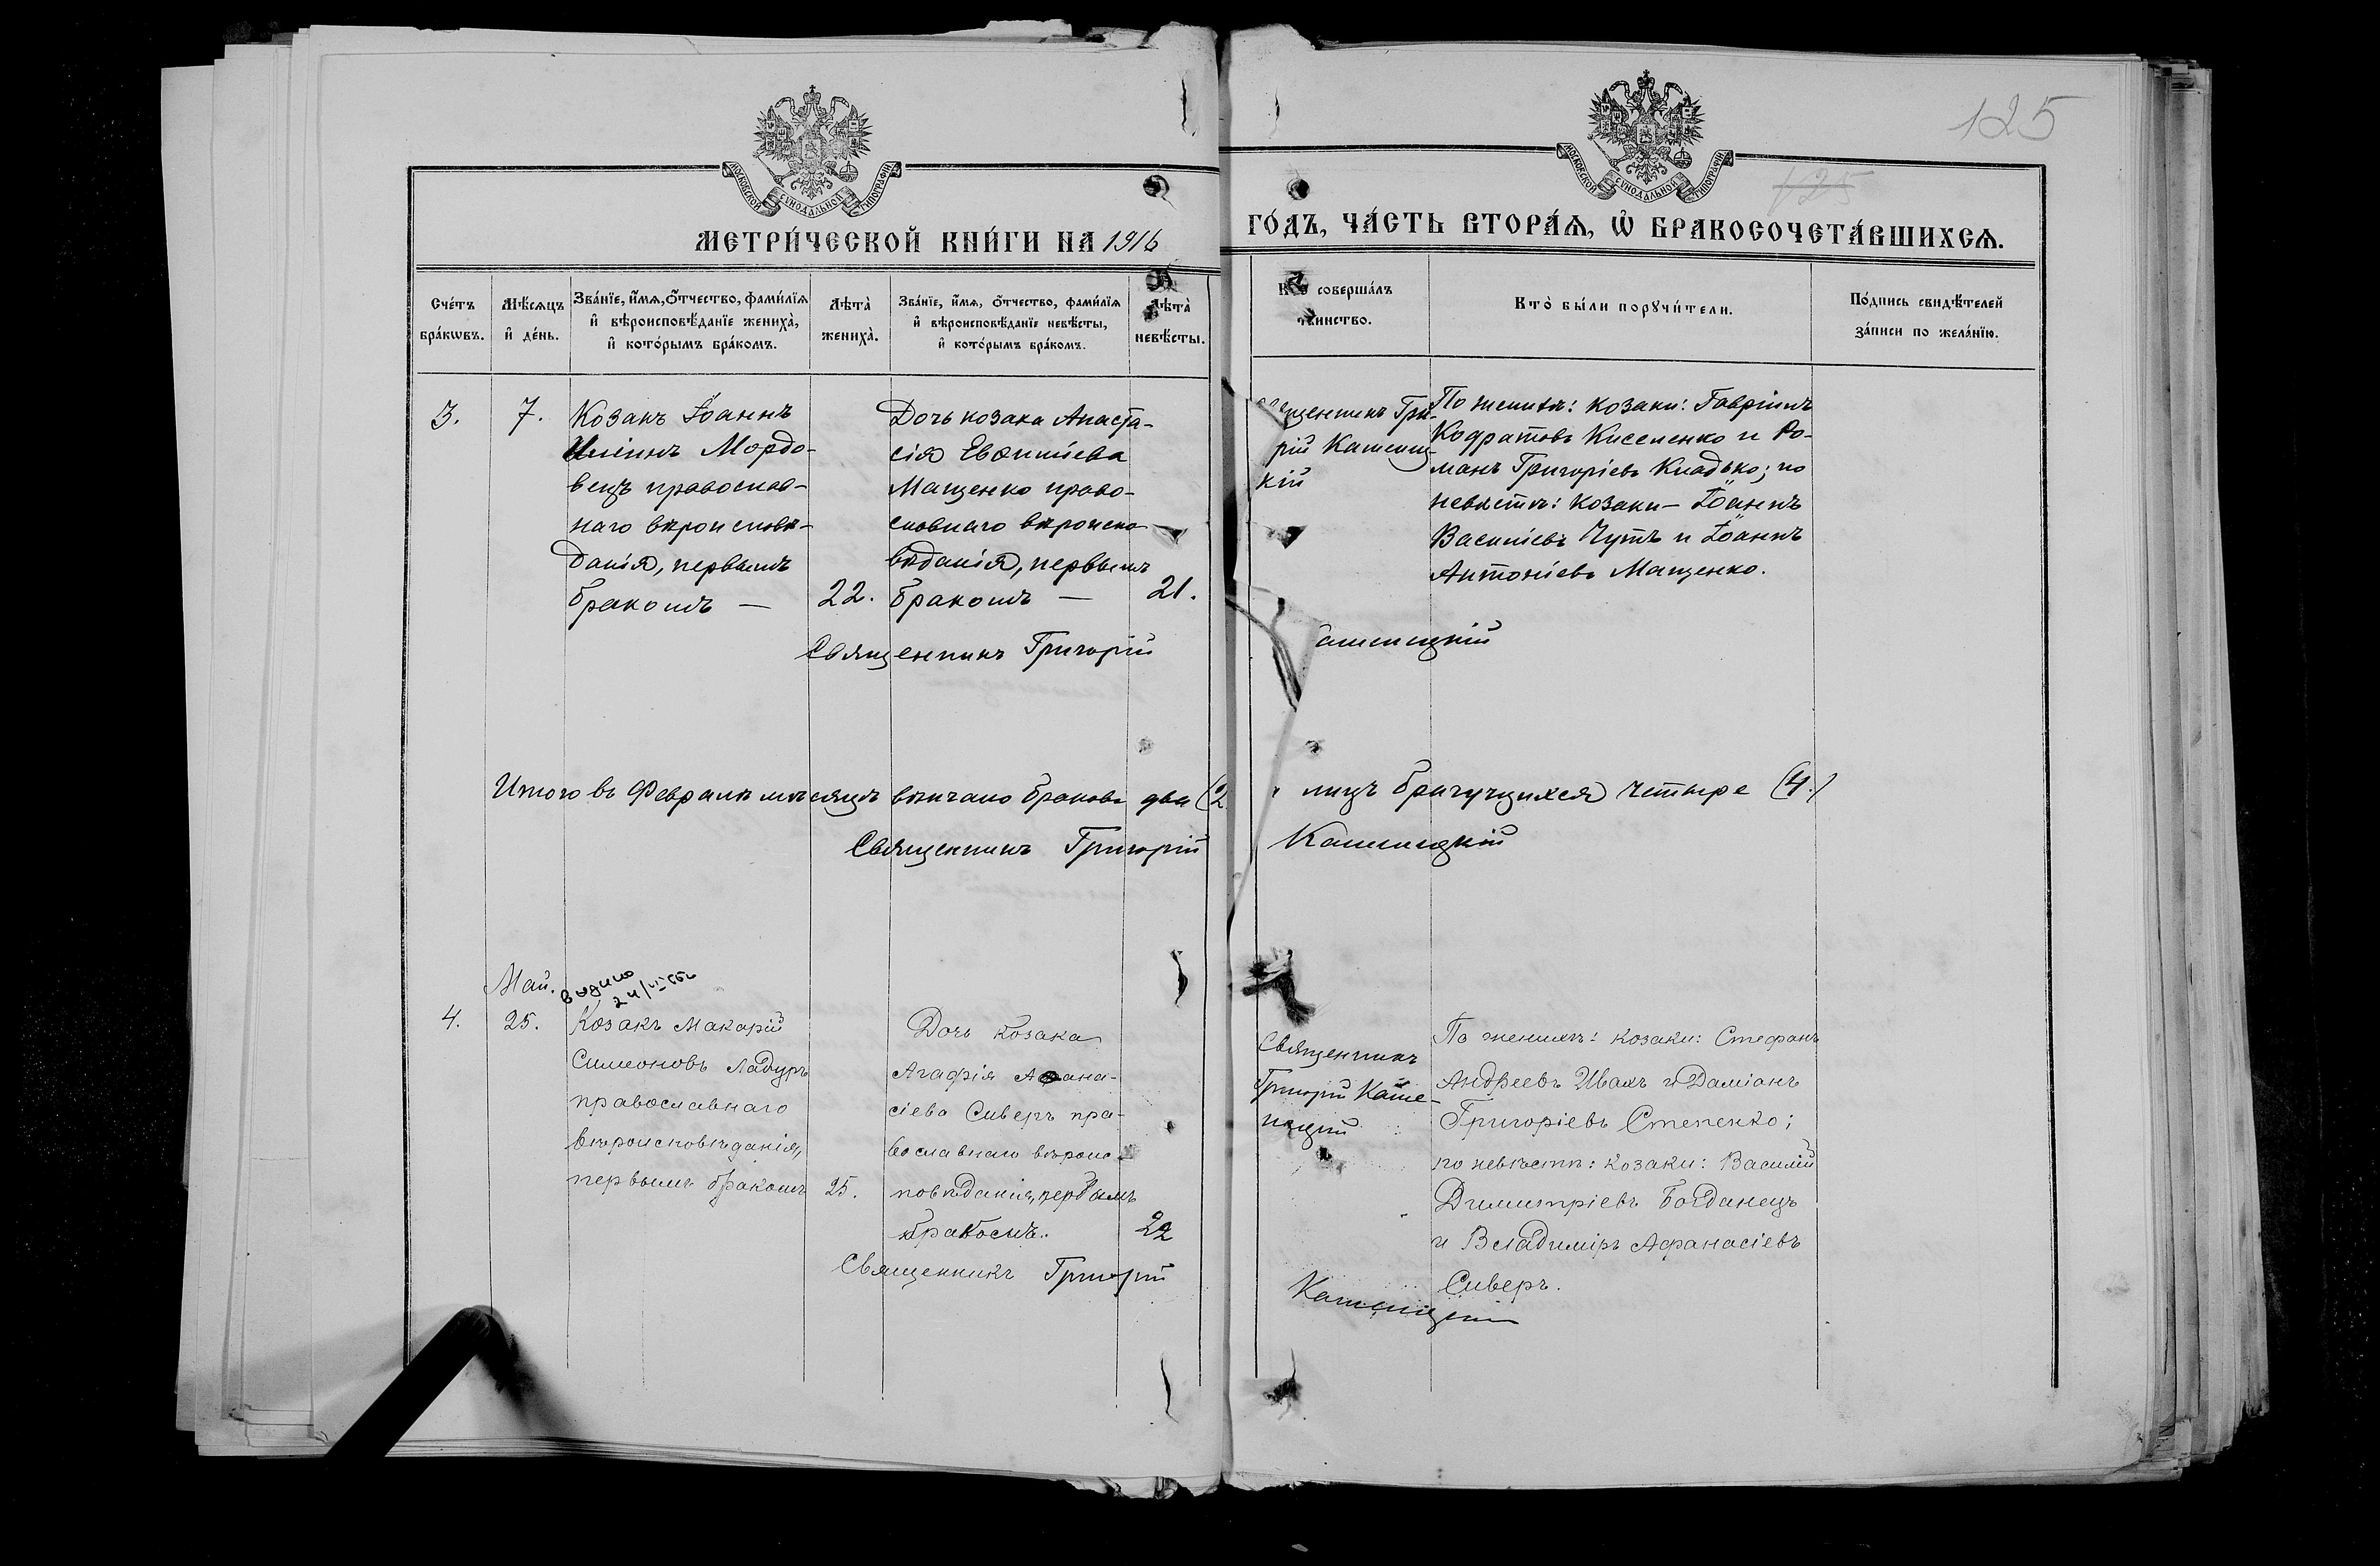 125
125
МОСКОВСКОЙ СУНОДАЛЬНОЙ ТИПОГРАФІИ
МОСКОВСКОЙ СУНОДАЛЬНОЙ ТИПОГРАФІИ
МЕТРИ́ЧЕСКОЙ КНИ́ГИ НА 1916
ГО́ДЪ, ЧА́СТЬ ВТОРА́Ѧ, Ѽ БРАКОСОЧЕТА́ВШИХСѦ.
Сче́тъ
бра́кѡвъ.
Мѣ́сѧцъ
и҆ де́нь.
Зва́нїе, и҆́мѧ, ѻ҆́тчество, фами́лїѧ
и҆ вѣроисповѣ́данїе жениха̀,
и҆ кото́рымъ бра́комъ.
Лѣта̀
жениха̀.
Зва́нїе, и҆́мѧ, ѻ҆́тчество, фами́лїѧ
и҆ вѣроисповѣ́данїе невѣ́сты,
и҆ кото́рымъ бра́комъ.
Лѣта̀
невѣ́сты.
совершáлъ
таинство.
Кто̀ бы́ли порꙋчи́тели.
По́дпись свидѣ́телей
за́писи по жела́нїю.
3.
7.
Козакъ Іоаннъ
Иліинъ Мордо-
вецъ православ-
наго вѣроисповѣ-
данія, первымъ
бракомъ —
22.
Дочь козака Анаста-
сія Евѳиміева
Мащенко право-
славнаго вѣроиспо-
вѣданія, первымъ
бракомъ —
21.
Священникъ Григорій
щенникъ Гри-
рій Кашиц-
кій
По женихѣ: козаки: Гавріилъ
Кодратовъ Киселенко и Ро-
манъ Григоріевъ Кладько; по
невѣстѣ: козаки — Іоаннъ
Василіевъ Чутъ и Іоаннъ
Антоніевъ Мащенко.
Итого въ Февралѣ мѣсяцѣ вѣнчано браковъ два (2
лицъ брачущихся четыре (4.)
Священникъ Григорій
Май.
видано
4.
25.
Козакъ Макарій
Симеоновъ Ладуръ
православнаго
вѣроисповѣданія,
первымъ бракомъ
25.
Дочь козака
Агафія Аѳана-
сіева Сиверъ пра-
вославнаго вѣроис-
повѣданія, первымъ
бракомъ.
22
Священникъ Григорій
Священникъ
Григорій Каше-
ницкій
По женихѣ: козаки: Стефанъ
Андреевъ Ивахъ и Даміанъ
Григоріевъ Степенко;
по невѣстѣ: козаки: Василій
Димитріевъ Богданецъ
и Владиміръ Афанасіевъ
Сиверъ.